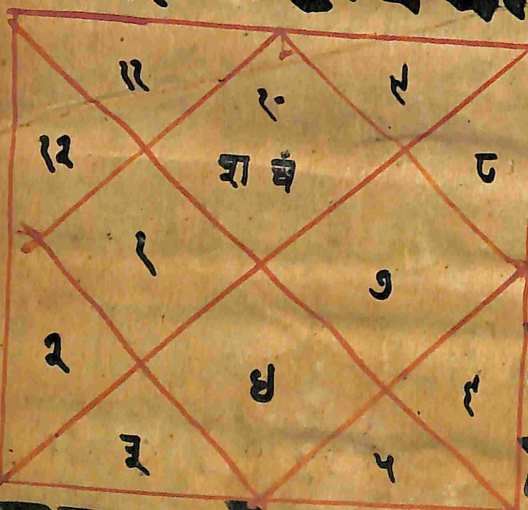 ११ १० ९
१२ श चं ८
१ ७
२ ४ ६
३ ५